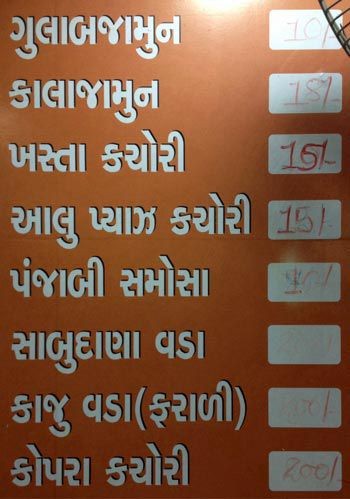 ગુલાબજામુન 10/-
કાલાજામુન 18/-
ખસ્તા કચોરી 15/-
આલુ પ્યાઝ કચોરી 15/-
પંજાબી સમોસા
સાબુદાણા વડા
કાજુ વડા(ફરાળી) 200/-
કોપરા કચોરી 200/-